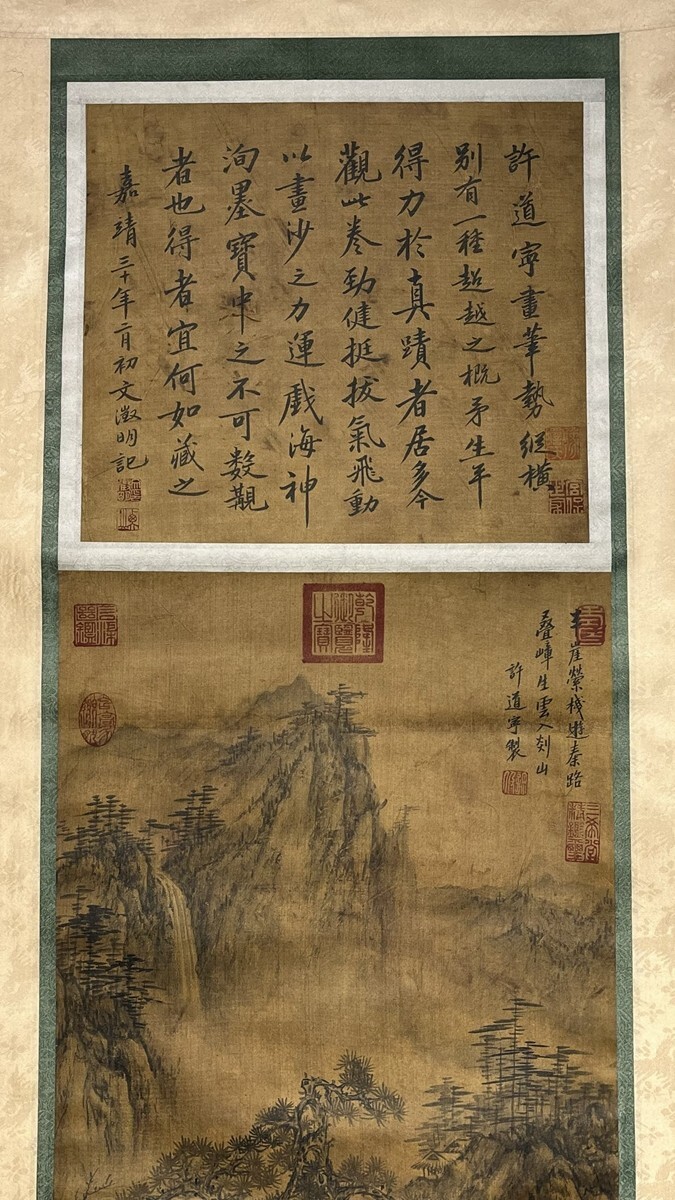 許道寧畫筆勢縱橫
別有一種超越之概矛生平
得力於真蹟者居多今
觀此卷勁健挺拔氣飛動
以畫沙之力運戲海神
洵墨寶中之不可數觀
者也得者宜何如藏之
嘉靖三十年二月初文徵明記
乾隆御覽之寶
半崖縈棧遊秦路
疊嶂生雲入剡山
許道寧製
三希堂精鑑璽